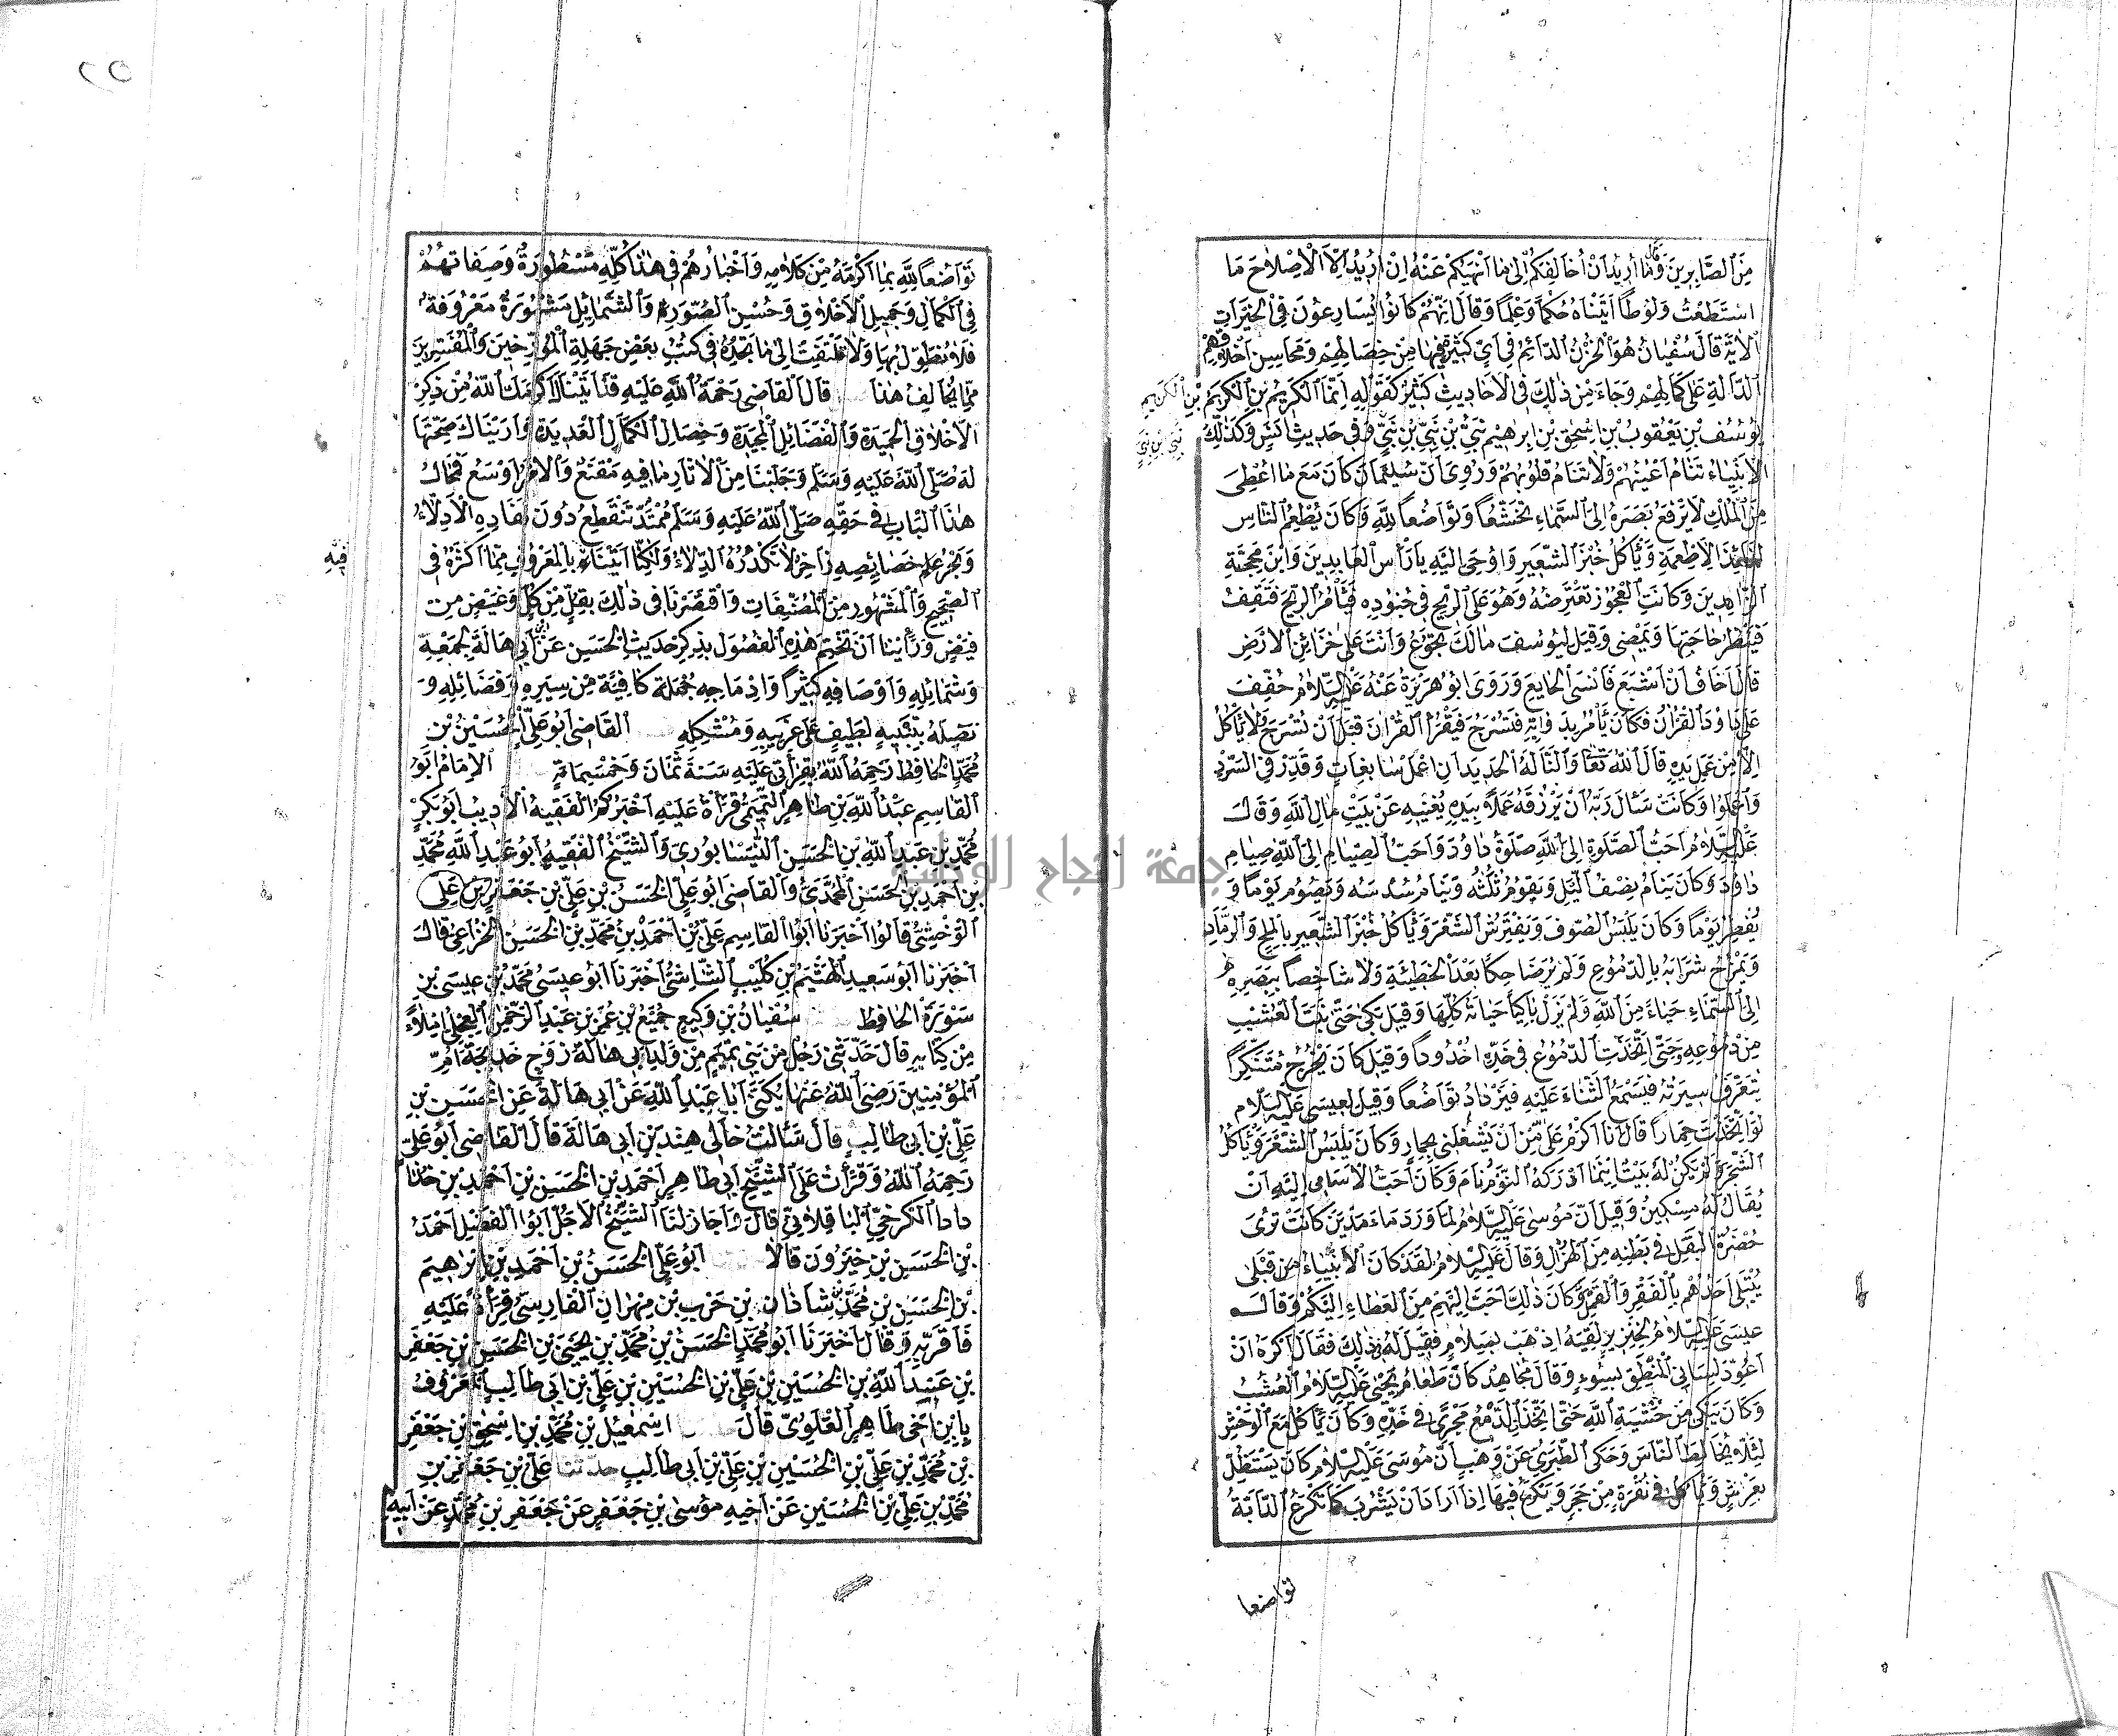 مِنَ الصَّابِرِينَ وَقَالَ وَمَا أُرِيدُ أَنْ أُخَالِفَكُمْ إِلَى مَا أَنْهَيكُمْ عَنْهُ إِنْ أُرِيدُ إِلَّا الْإِصْلَاحَ مَا
اسْتَطَعْتُ وَلُوطاً آتَيْنَاهُ حُكْماً وَعِلْماً وَقَالَ إِنَّهُمْ كَانُوا يُسَارِعُونَ فِي الْخَيْرَاتِ
الْآيَةَ قَالَ سُفْيَانُ هُوَ الْحُزْنُ الدَّائِمُ فِي آيٍ كَثِيرَةٍ فِيهَا مِنْ خِصَالِهِمْ وَمَحَاسِنِ أَخْلَاقِهِمْ
الدَّالَّةِ عَلَى كَمَالِهِمْ وَجَاءَ مِنْ ذٰلِكَ فِي الْأَحَادِيثِ كَثِيرٌ كَقَوْلِهِ إِنَّمَا الْكَرِيمُ بْنِ الْكَرِيمِ بْنِ الْكَرِيمِ
يُوسُفُ بْنِ يَعْقُوبَ بْنِ إِسْحٰقَ بْنِ إِبْرٰهِيمَ نَبِيُّ بْنِ نَبِيِّ بْنِ نَبِيٍّ وَفِي حَدِيثِ أَنَسٍ وَكَذٰلِكَ
نَبِيِّ بْنِ نَبِيٍّ
الْأَنْبِيَاءُ تَنَامُ أَعْيُنُهُمْ وَلَا تَنَامُ قُلُوبُهُمْ وَرُوِيَ أَنَّ سُلَيْمَانَ كَانَ مَعَ مَا أُعْطِيَ
مِنَ الْمُلْكِ لَا يَرْفَعُ بَصَرَهُ إِلَى السَّمَاءِ تَخَشُّعًا وَتَوَاضُعاً لِلَّهِ وَكَانَ يُطْعِمُ النَّاسِ
لَذَائِذَ الْأَطْعِمَةِ وَيَأْكُلُ خُبْزَ الشَّعِيرِ وَأُوحِيَ إِلَيْهِ يَا رَأْسَ الْعَابِدِينَ وَابْنَ مَحَجَّةِ
الزَّاهِدِينَ وَكَانَتِ الْعَجُوزُ تَعْتَرِضُهُ وَهُوَ عَلَى الرِّيحِ فِي جُنُودِهِ فَيَأْمُرُ الرِّيحَ فَتَقِفُ
فَيَنْظُرُ حَاجَتَهَا وَيَمْضِي وَقِيلَ لِيُوسُفَ مَا لَكَ تَجُوعُ وَأَنْتَ عَلَى خَزَائِنِ الْأَرْضِ
قَالَ أَخَافُ أَنْ أَشْبَعَ فَأَنْسَى الْجَايِعَ وَرَوَى أَبُو هُرَيْرَةَ عَنْهُ عَلَيْهِ السَّلَامُ خُفِّفَ
عَلَى دَاوُدَ الْقُرْآنُ فَكَانَ يَأْمُرُ بِدَوَابِّهِ فَتُسْرَجُ فَيَقْرَأُ الْقُرْآنَ قَبْلَ أَنْ تُسْرَجَ وَلَا يَأْكُلُ
إِلَّا مِنْ عَمَلِ يَدِهِ قَالَ اللّٰهُ تَعَا وَأَلَنَّا لَهُ الْحَدِيدَ أَنِ اعْمَلْ سَابِغَاتٍ وَقَدِّرْ فِي السَّرْدِ
وَاعْمَلُوا وَكَانَتْ سَأَلَ رَبَّهُ أَنْ يَرْزُقَهُ عَمَلاً بِيَدِهِ يُغْنِيهِ عَنْ بَيْتِ مَالِ اللّٰهِ وَقَالَ
عَلَيْهِ السَّلَامُ أَحَبُّ الصَّلٰوةِ إِلَى اللّٰهِ صَلٰوةُ دَاوُدَ وَأَحَبُّ الصِّيَامِ إِلَى اللّٰهِ صِيَامُ
دَاوُدَ وَكَانَ يَنَامُ نِصْفَ اللَّيْلِ وَيَقُومُ ثُلُثَهُ وَيَنَامُ سُدُسَهُ وَيَصُومُ يَوْماً وَ
يُفْطِرُ يَوْماً وَكَانَ يَلْبَسُ الصُّوفَ وَيَفْتَرِشُ الشَّعْرَ وَيَأْكُلُ خُبْزَ الشَّعِيرِ بِالْمِلْحِ وَالرَّمَادِ
وَيَمْزُجُ شَرَابَهُ بِالدُّمُوعِ وَلَمْ يُرَ ضَاحِكاً بَعْدَ الْخَطِيئَةِ وَلَا شَاخِصاً بِبَصَرِهِ
إِلَى السَّمَاءِ حَيَاءً مِنَ اللّٰهِ وَلَمْ يَزَلْ بَاكِياً حَيَاتَهُ كُلَّهَا وَقِيلَ بَكَى حَتَّى نَبَتَ الْعُشْبُ
مِنْ دُمُوعِهِ وَحَتَّى اتَّخَذَتِ الدُّمُوعُ فِي خَدِّهِ أُخْدُوداً وَقِيلَ كَانَ يَخْرُجُ مُتَنَكِّراً
يَتَعَرَّفُ سِيرَتَهُ فَيَسْمَعُ الثَّنَاءَ عَلَيْهِ فَيَزْدَادُ تَوَاضُعاً وَقِيلَ لِعِيسَى عَلَيْهِ السَّلَامُ
لَوِ اتَّخَذْتَ حِمَاراً قَالَ أَنَا أَكْرَمُ عَلَى مِنْ أَنْ يَشْغَلَنِي بِحِمَارٍ وَكَانَ يَلْبَسُ الشَّعْرَ وَيَأْكُلُ
الشَّجَرَ وَلَمْ يَكُنْ لَهُ بَيْتٌ أَيْنَمَا أَدْرَكَهُ النَّوْمُ نَامَ وَكَانَ أَحَبُّ الْأَسَامِي إِلَيْهِ أَنْ
يُقَالَ لَهُ مِسْكِينٌ وَقِيلَ أَنَّ مُوسَى عَلَيْهِ السَّلَامُ لَمَّا وَرَدَ مَاءَ مَدْيَنَ كَانَتْ تُرَى
خُضْرَةُ الْبَقْلِ فِي بَطْنِهِ مِنَ الْهُزَالِ وَقَالَ عَلَيْهِ السَّلَامُ لَقَدْ كَانَ الْأَنْبِيَاءُ مِنْ قَبْلِي
يُبْتَلَى أَحَدُهُمْ بِالْفَقْرِ وَالْقَمْلِ وَكَانَ ذٰلِكَ أَحَبَّ إِلَيْهِمْ مِنَ الْعَطَاءِ إِلَيْكُمْ وَقَالَ
عِيسَى عَلَيْهِ السَّلَامُ لِخِنْزِيرٍ لَقِيَهُ اذْهَبْ بِسَلَامٍ فَقِيلَ لَهُ فِي ذٰلِكَ فَقَالَ أَكْرَهُ أَنْ
أُعَوِّدَ لِسَانِي الْمَنْطِقَ بِسُوءٍ وَقَالَ مُجَاهِدٌ كَانَ طَعَامُ يَحْيَى عَلَيْهِ السَّلَامُ الْعُشْبُ
وَكَانَ يَبْكِي مِنْ خَشْيَةِ اللّٰهِ حَتَّى اتَّخَذَ الدَّمْعُ مَجْرًى فِي خَدِّهِ وَكَانَ يَأْكُلُ مَعَ الْوَحْشِ
لِئَلَّا يُخَالِطَ النَّاسَ وَحَكَى الطَّبَرِيُّ عَنْ وَهْبٍ أَنَّ مُوسَى عَلَيْهِ السَّلَامُ كَانَ يَسْتَظِلُّ
بِعَرِيشٍ وَيَأْكُلُ فِي نُقْرَةٍ مِنْ حَجَرٍ وَيَكْرَعُ فِيهَا إِذَا أَرَادَ أَنْ يَشْرَبَ كَمَا تَكْرَعُ الدَّابَّةُ
تواضعا
تَوَاضُعاً لِلَّهِ بِمَا أَكْرَمَهُ مِنْ كَلَامِهِ وَأَخْبَارُهُمْ فِي هٰذَا كُلِّهِ مَسْطُورَةٌ وَصِفَاتُهُمْ
فِي الْكَمَالِ وَجَمِيلِ الْأَخْلَاقِ وَحُسْنِ الصُّوَرِ وَالشَّمَائِلِ مَشْهُورَةٌ مَعْرُوفَةٌ
فَلَا نُطَوِّلُ بِهَا وَلَا تَلْتَفِتْ إِلَى مَا تَجِدُهُ فِي كُتُبِ بَعْضِ جَهَلَةِ الْمُؤَرِّخِينَ وَالْمُفَسِّرِينَ
مِمَّا يُخَالِفُ هٰذَا قَالَ الْقَاضِي رَحْمَةُ اللّٰهِ عَلَيْهِ قَدْ أَتَيْنَاكَ أَكْرَمَكَ اللّٰهُ مِنْ ذِكْرِ
الْأَخْلَاقِ الْحَمِيدَةِ وَالْفَضَائِلِ الْمَجِيدَةِ وَخِصَالِ الْكَمَالِ الْعَدِيدَةِ وَأَرَيْنَاكَ صِحَّتَهَا
لَهُ صَلَّى اللّٰهُ عَلَيْهِ وَسَلَّمَ وَجَلَبْنَا مِنَ الْآثَارِ مَا فِيهِ مَقْنَعٌ وَالْأَمْرُ أَوْسَعُ فَمَجَالُ
هٰذَا الْبَابِ فِي حَقِّهِ صَلَّى اللّٰهُ عَلَيْهِ وَسَلَّمَ مُمْتَدٌّ تَنْقَطِعُ دُونَ نَفَادِهِ الْأَدِلَّاءُ
وَبَحْرُ عِلْمِ خَصَائِصِهِ زَاخِرٌ لَا تُكَدِّرُهُ الدِّلَاءُ وَلٰكِنَّا أَتَيْنَا فِيهِ بِالْمَعْرُوفِ مِمَّا أَكْثَرُهُ فِي
الصَّحِيحِ وَالْمَشْهُورِ مِنَ الْمُصَنَّفَاتِ وَاقْتَصَرْنَا فِي ذٰلِكَ بِقُلٍّ مِنْ كُلٍّ وَغَيْضٍ مِنْ
فَيْضٍ وَرَأَيْنَا أَنْ نَخْتِمَ هٰذِهِ الْفُصُولَ بِذِكْرِ حَدِيثِ الْحَسَنِ عَنْ أَبِي هَالَةَ لِجَمْعِهِ
وَشَمَائِلِهِ وَأَوْصَافِهِ كَثِيراً وَإِدْمَاجِهِ جُمْلَةً كَافِيَةً مِنْ سِيَرِهِ وَفَضَائِلِهِ وَ
نَصِلُهُ بِتَنْبِيهٍ لَطِيفٍ عَلَى غَرِيبِهِ وَمُشْكِلِهِ الْقَاضِي أَبُو عَلِيٍّ الْحُسَيْنُ بْنُ
مُحَمَّدٍ الْحَافِظُ رَحِمَهُ اللّٰهُ بِقِرَاءَتِي عَلَيْهِ سَنَةَ ثَمَانَ وَخَمْسِمِائَةٍ الْإِمَامُ أَبُو
الْقَاسِمِ عَبْدُ اللّٰهِ بْنِ طَاهِرٍ التَّمِيمِيُّ قِرَاءَةً عَلَيْهِ أَخْبَرَكُمُ الْفَقِيهُ الْأَدِيبُ أَبُو بَكْرٍ
مُحَمَّدُ بْنِ عَبْدِ اللّٰهِ بْنِ الْحَسَنِ النَّيْسَابُورِيُّ وَالشَّيْخُ الْفَقِيهُ أَبُو عَبْدِ اللّٰهِ مُحَمَّدُ
بْنِ أَحْمَدَ بْنِ الْحَسَنِ الْمُحَمَّدِيُّ وَالْقَاضِي أَبُو عَلِيٍّ الْحَسَنُ بْنِ عَلِيِّ بْنِ جَعْفَرِ بْنِ عَلِي
الْوَخْشِيُّ قَالُوا أَخْبَرَنَا أَبُو الْقَاسِمِ عَلِيُّ بْنِ أَحْمَدَ بْنِ مُحَمَّدِ بْنِ الْحَسَنِ الْخُزَاعِيُّ قَالَ
أَخْبَرَنَا أَبُو سَعِيدٍ الْهَيْثَمُ بْنِ كُلَيْبٍ الشَّاشِيُّ أَخْبَرَنَا أَبُو عِيسَى مُحَمَّدُ بْنِ عِيسَى بْنِ
سَوْرَةَ الْحَافِظُ سُفْيَانُ بْنِ وَكِيعٍ جُمَيْعُ بْنِ عُمَرَ بْنِ عَبْدِ الرَّحْمٰنِ الْعِجْلِيُّ إِمْلَاءً
مِنْ كِتَابِهِ قَالَ حَدَّثَنِي رَجُلٌ مِنْ بَنِي تَمِيمٍ مِنْ وَلَدِ أَبِي هَالَةَ زَوْجِ خَدِيجَةَ أُمِّ
الْمُؤْمِنِينَ رَضِيَ اللّٰهُ عَنْهَا يُكَنَّى أَبَا عَبْدِ اللّٰهِ عَنْ أَبِي هَالَةَ عَنِ الْحَسَنِ بْنِ
عَلِيِّ بْنِ أَبِي طَالِبٍ قَالَ سَأَلْتُ خَالِي هِنْدَ بْنِ أَبِي هَالَةَ قَالَ الْقَاضِي أَبُو عَلِيٍّ
رَحِمَهُ اللّٰهُ وَقَرَأْتُ عَلَى الشَّيْخِ أَبِي طَاهِرٍ أَحْمَدَ بْنِ الْحَسَنِ بْنِ أَحْمَدَ بْنِ خُذَا
دَادَا الْكَرْخِيِّ الْبَاقِلَّانِيِّ قَالَ وَأَجَازَ لَنَا الشَّيْخُ الْأَجَلُّ أَبُو الْفَضْلِ أَحْمَدُ
بْنِ الْحَسَنِ بْنِ خَيْرُونَ قَالَا أَبُو عَلِيٍّ الْحَسَنُ بْنِ أَحْمَدَ بْنِ إِبْرٰهِيمَ
بْنِ الْحَسَنِ بْنِ مُحَمَّدِ بْنِ شَاذَانَ بْنِ حَرْبِ بْنِ مِهْرَانَ الْفَارِسِيُّ قِرَاءَةً عَلَيْهِ
فَأَقَرَّ بِهِ وَقَالَ أَخْبَرَنَا أَبُو مُحَمَّدٍ الْحَسَنُ بْنِ مُحَمَّدِ بْنِ يَحْيَى بْنِ الْحَسَنِ بْنِ جَعْفَرِ
بْنِ عَبْدِ اللّٰهِ بْنِ الْحُسَيْنِ بْنِ عَلِيِّ بْنِ الْحُسَيْنِ بْنِ عَلِيِّ بْنِ أَبِي طَالِبٍ الْمَعْرُوفُ
بِابْنِ أَخِي طَاهِرٍ الْعَلَوِيِّ قَالَ إِسْمٰعِيلُ بْنِ مُحَمَّدِ بْنِ إِسْحٰقَ بْنِ جَعْفَرِ
بْنِ مُحَمَّدِ بْنِ عَلِيِّ بْنِ الْحُسَيْنِ بْنِ عَلِيِّ بْنِ أَبِي طَالِبٍ حدثنا عَلِيُّ بْنِ جَعْفَرِ بْنِ
مُحَمَّدِ بْنِ عَلِيِّ بْنِ الْحُسَيْنِ عَنْ أَخِيهِ مُوسَى بْنِ جَعْفَرٍ عَنْ جَعْفَرِ بْنِ مُحَمَّدٍ عَنْ أَبِيهِ
جامعة النجاح الوطنية